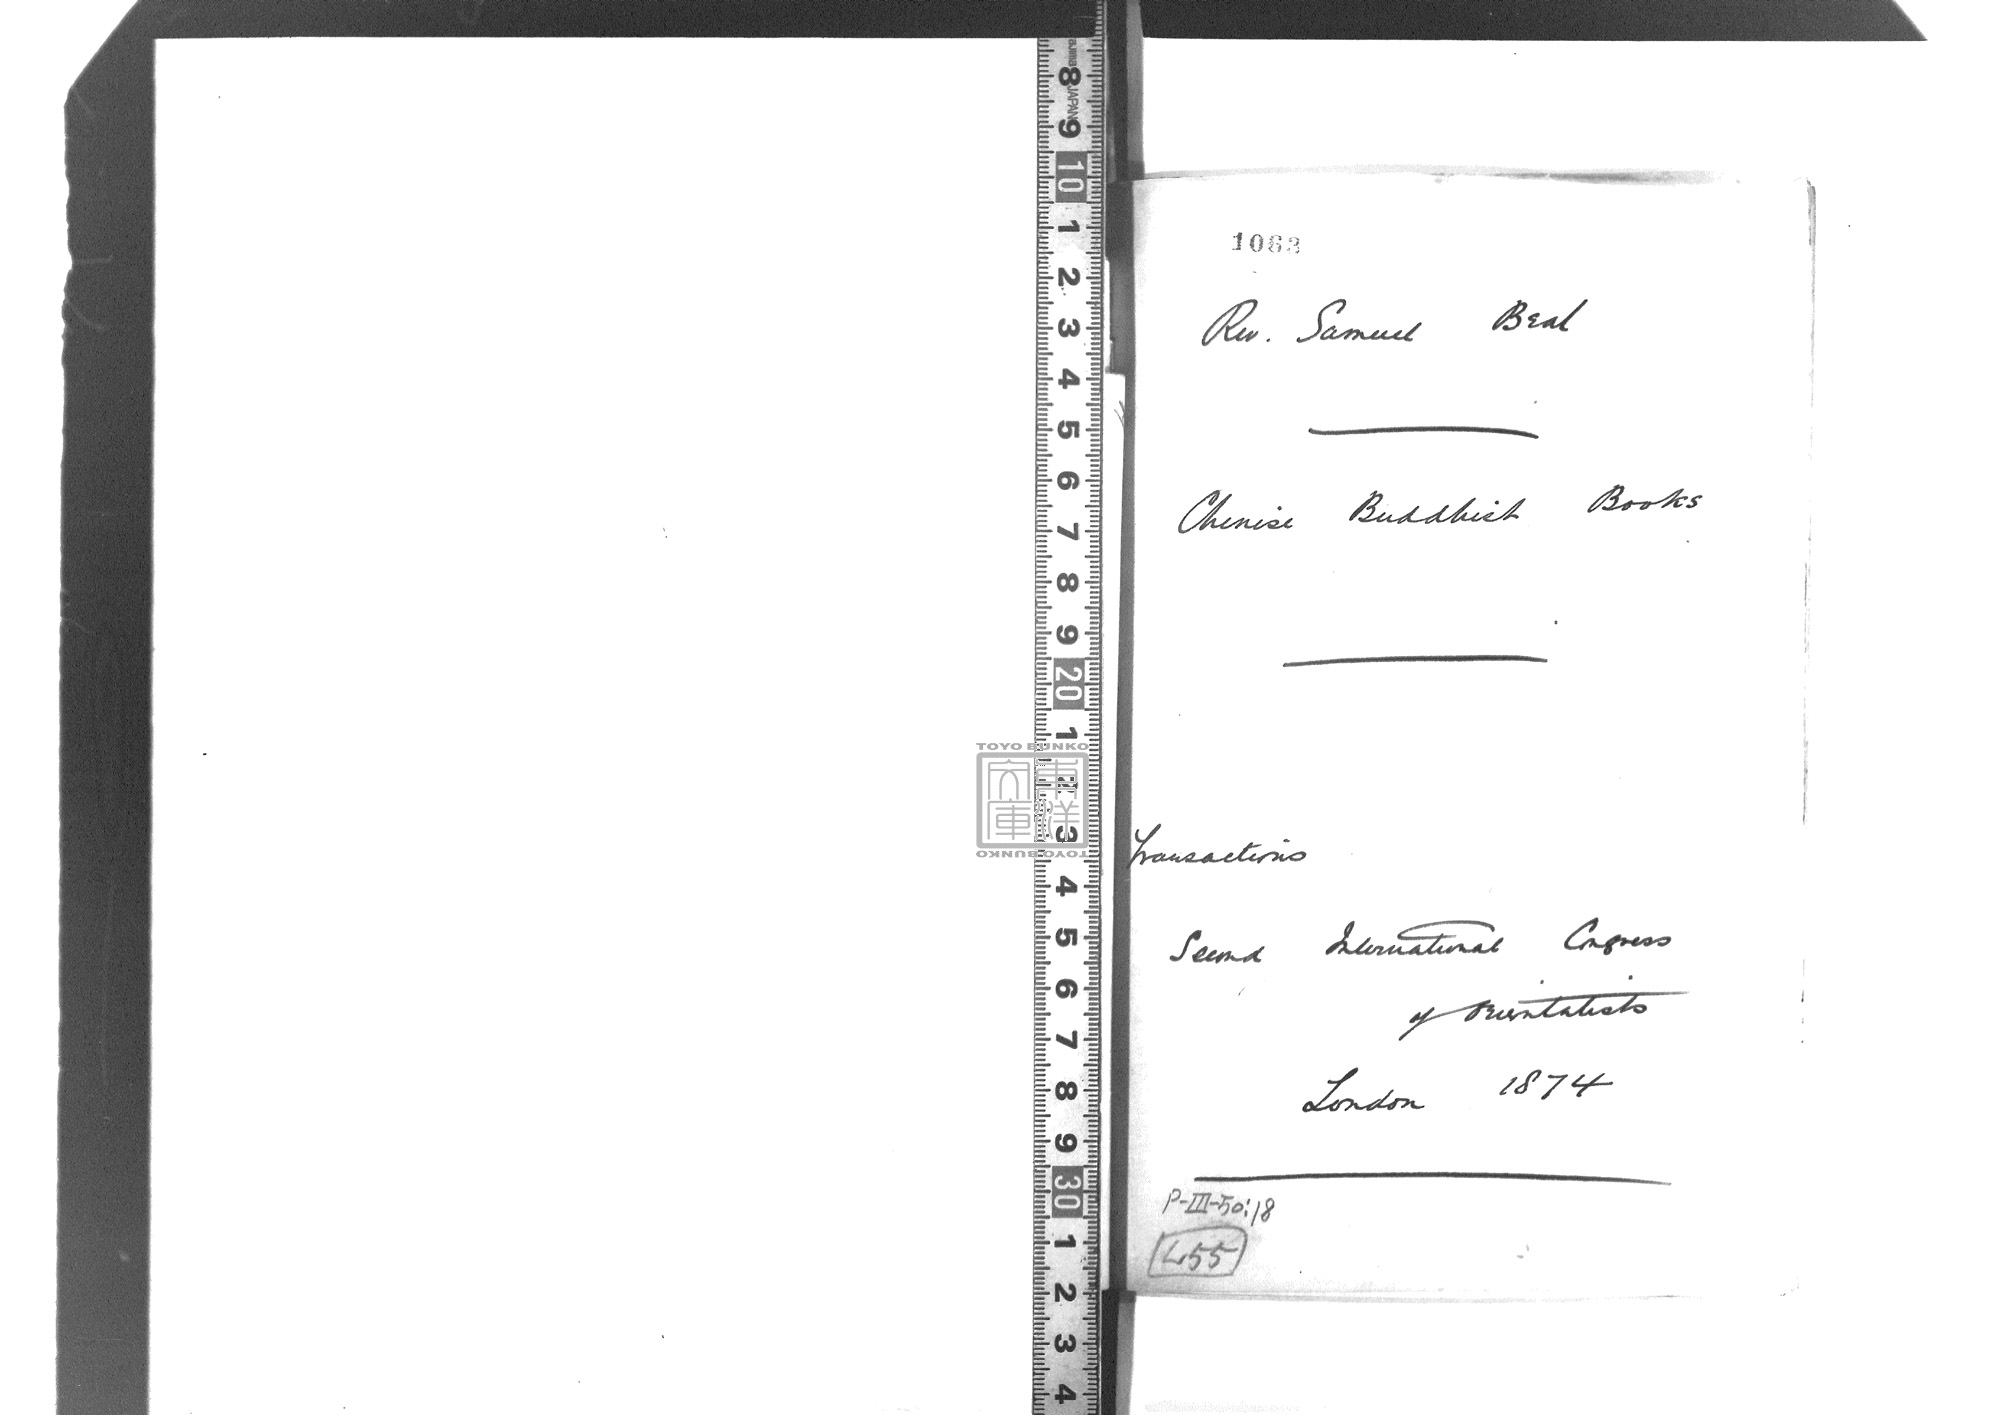 1063
Rev. Samuel Beal
Chinese Buddhist Books
Transactions
Second International Congress
of Orientalists
London 1874
P-III-50:18
L55
JAPAN
8
9
10
1
2
3
4
5
6
7
8
9
20
1
2
3
4
5
6
7
8
9
30
1
2
3
4
TOYO BUNKO
東洋文庫
TOYO BUNKO